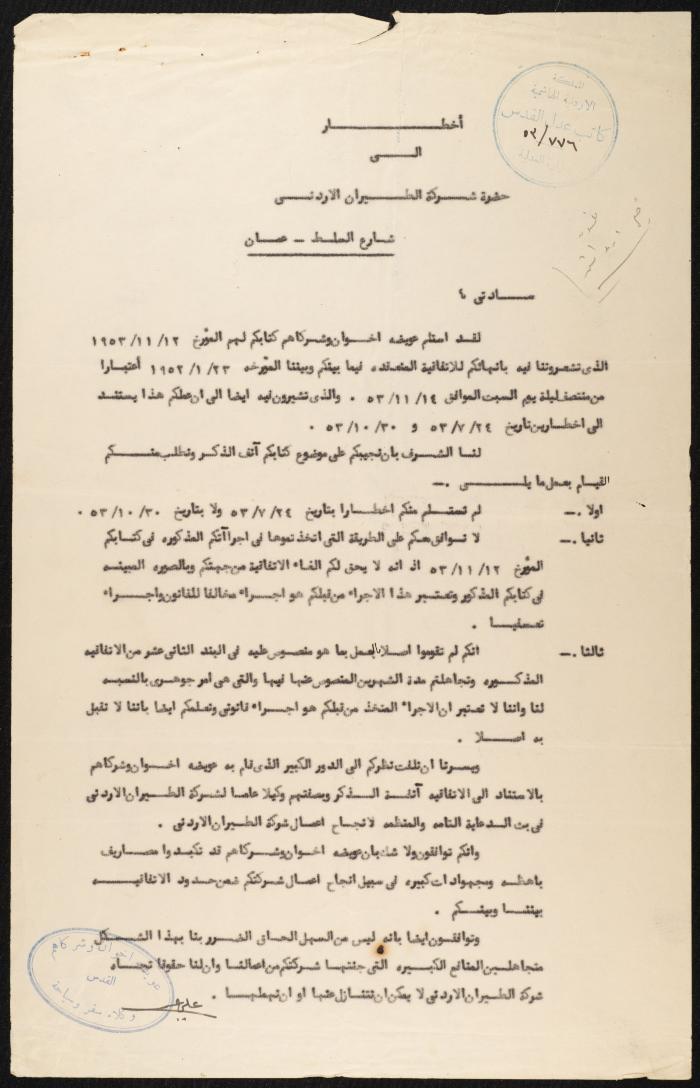 المملكة
الاردنية الهاشمية
كاتب عدل القدس
٥٣/٧٧٦
أخطار
الى
حضرة شركة الطيران الاردني
شارع السلط - عمان
سادتي ،
لقد استلم عويضه اخوان وشركاهم كتابكم لهم المؤرخ ١٩٥٣/١١/١٢
الذى تشعروننا فيه بانهائكم للاتفاقية المنعقده فيما بينكم وبيننا المؤرخه ١٩٥٢/١/٢٣ أعتبارا
من منتصف ليلة يوم السبت الموافق ٥٣/١١/١٤ . والذى تشيرون فيه ايضا الى ان عملكم هذا يستند
الى اخطارين تاريخ ٥٣/٧/٢٤ و ٥٣/١٠/٣٠ .
لنا الشرف بان نجيبكم على موضوع كتابكم آنف الذكر ونطلب منكم
القيام بعمل ما يلى .-
اولا .- لم نستلم منكم اخطارا بتاريخ ٥٣/٧/٢٤ ولا بتاريخ ٥٣/١٠/٣٠ .
ثانيا .- لا نوافقكم على الطريقة التى اتخذتموها فى اجراآتكم المذكوره فى كتابكم
المؤرخ ٥٣/١١/١٢ اذ انه لا يحق لكم الغاء الاتفاقية من جهتكم وبالصوره المبينه
فى كتابكم المذكور ونعتبر هذا الاجراء من قبلكم هو اجراء مخالفا للقانون واجراء
تعسفيا .
ثالثا .- انكم لم تقوموا اصلا بالعمل بما هو منصوص عليه فى البند الثانى عشر من الاتفاقيه
المذكوره وتجاهلتم مدة الشهرين المنصوص عنها فيها والتى هى امر جوهرى بالنسبه
لنا واننا لا نعتبر ان الاجراء المتخذ من قبلكم هو اجراء قانونى ونعلمكم ايضا باننا لا نقبل
به اصلا .
ويسرنا ان نلفت نظركم الى الدور الكبير الذى قام به عويضه اخوان وشركاهم
بالاستناد الى الاتفاقيه آنفة الذكر وبصفتهم وكيلا عاما لشركة الطيران الاردنى
فى بث الدعاية التامه والمنظمه لانجاح اعمال شركة الطيران الاردنى .
وانكم توافقون ولا شك بان عويضه اخوان وشركاهم قد تكبدوا مصاريف
باهظه ومجهودات كبيره فى سبيل انجاح اعمال شركتكم ضمن حدود الاتفاقيه
بيننا وبينكم .
وتوافقون ايضا بانه ليس من السهل الحاق الضرر بنا بهذا الشكل
متجاهلين المنافع الكبيره التى جنتها شركتكم من اعمالنا وان لنا حقوقا تجاه
شركة الطيران الاردنى لا يمكن ان نتنازل عنها او ان نهملها .
عويضه اخوان وشركاهم
القدس
وكلاء سفر وسياحة